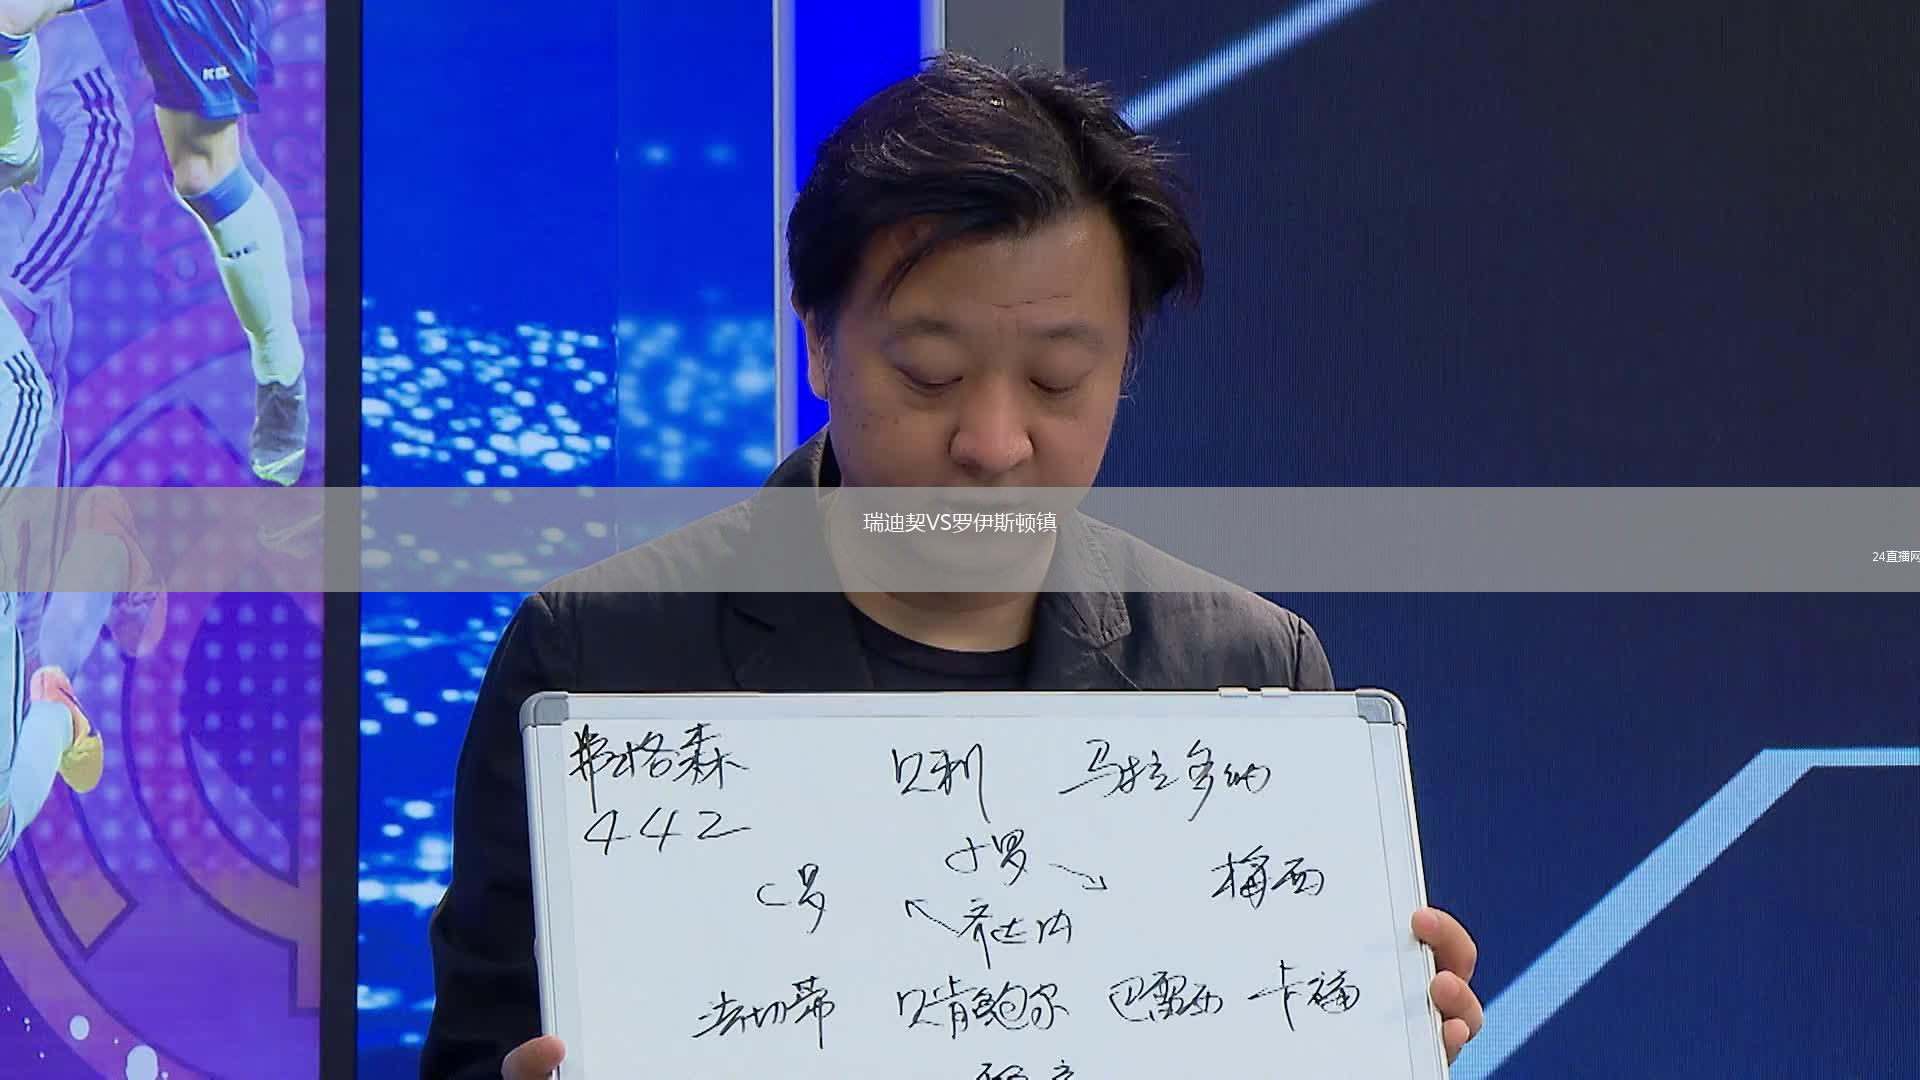 KEL
瑞迪契VS罗伊斯顿镇
24直播网
弗格森 贝利 马拉多纳
442
小罗
C罗 梅西
齐达内
法切蒂 贝肯鲍尔 巴雷西 卡福